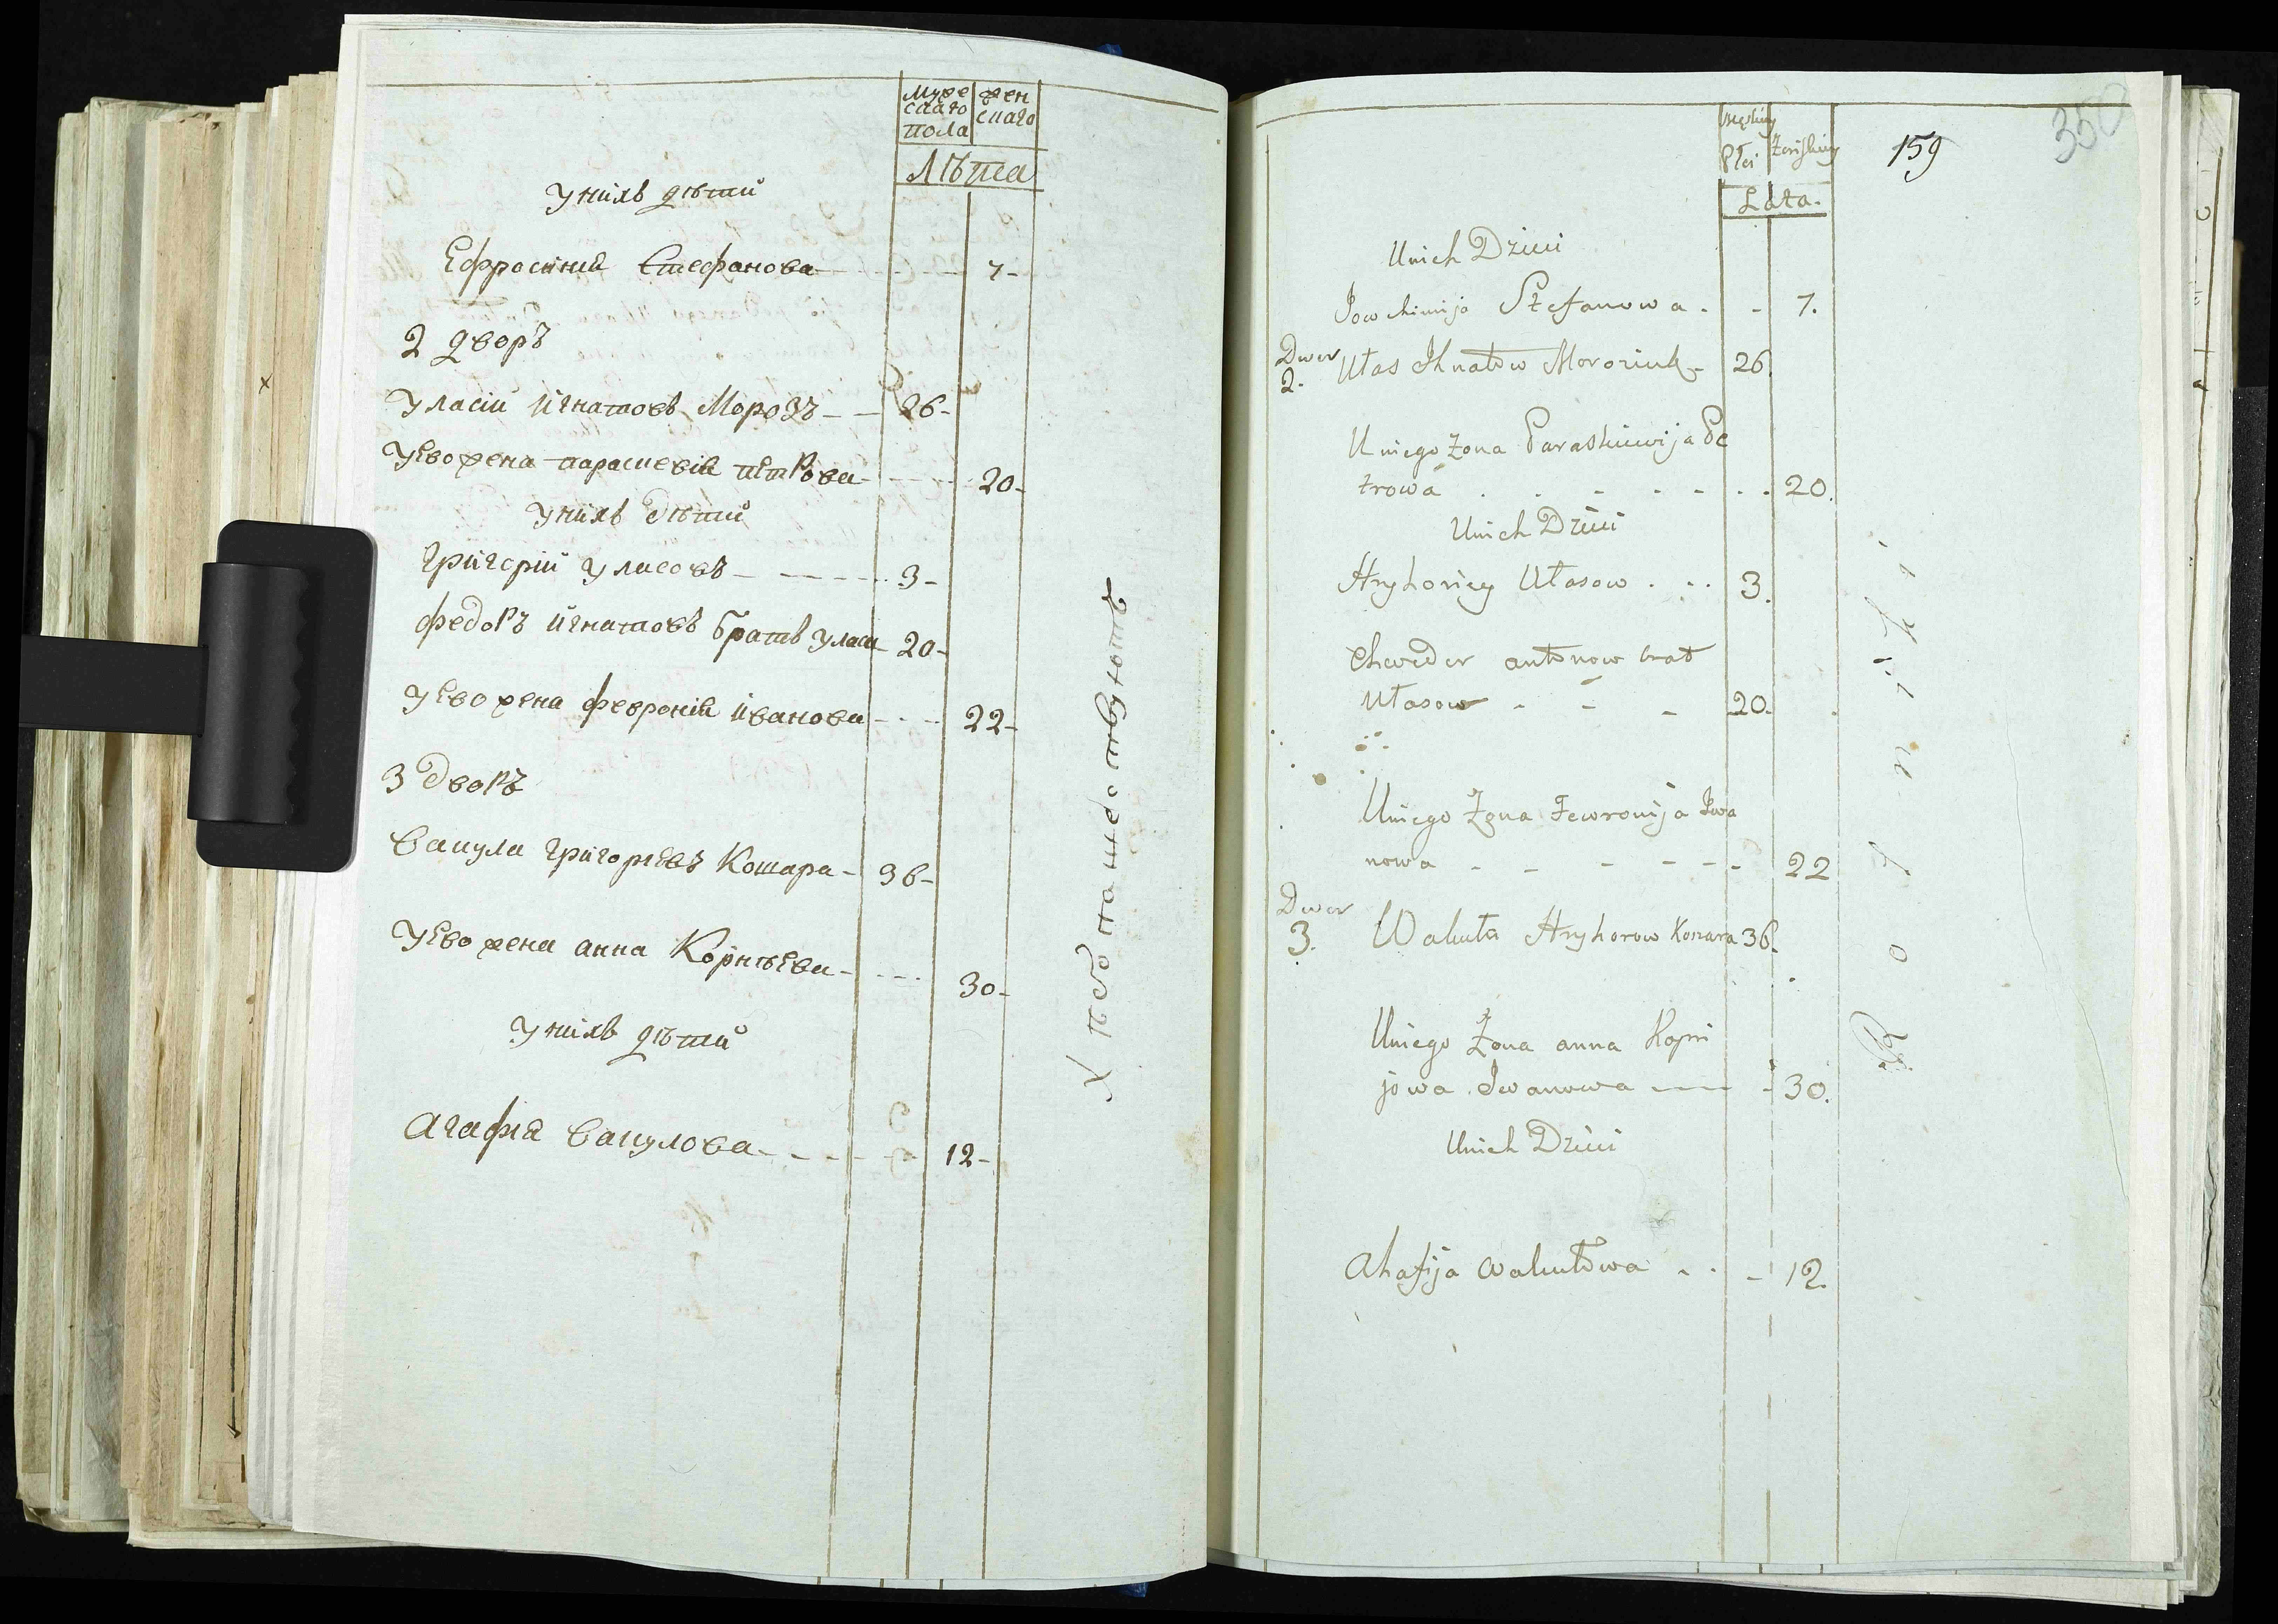 Муже жен
скаго скаго
пола
Лѣта
У нихъ дѣти
Ефросинія Стефанова - - - - 7-
2 дворъ
Уласій Игнатовъ Морозъ - - 26-
У Ево жена Параскевія Петрова - - - 20-
У нихъ дѣти
Григорій Уласовъ - - - - - 3-
Федоръ Игнатовъ братъ Уласа 20-
У Ево жена Феврония Иванова - - - 22-
3 дворъ
Вакула Григорьевъ Кошара - 36-
У Ево жена Анна Корнѣева - - - - 30-
У нихъ дѣти
Агафія Вакулова - - - - - 12-
159
350
Męskiey Żeńskiey
Płci
Lata.
Unich Dzieci
Stefanowa . - 7.
Dwor
2. Ułas Ihnatow Moroziuk - 26.
Uniego Żona Paraskiewija Pe
trowa . . - - - . . 20.
Unich Dzieci
Hryhoriey Ułasow . . . 3.
Chwedor antonow brat
Ułasow - - - 20.
Uniego Żona Fewronija Iwa
nowa - - - - - - 22
Dwor
3. Wakuła Hryhorow Koszara 36.
Uniego Żona anna Korni
jowa Iwanowa — - 30.
Unich Dzieci
ahafija Wakułowa . . - 12.